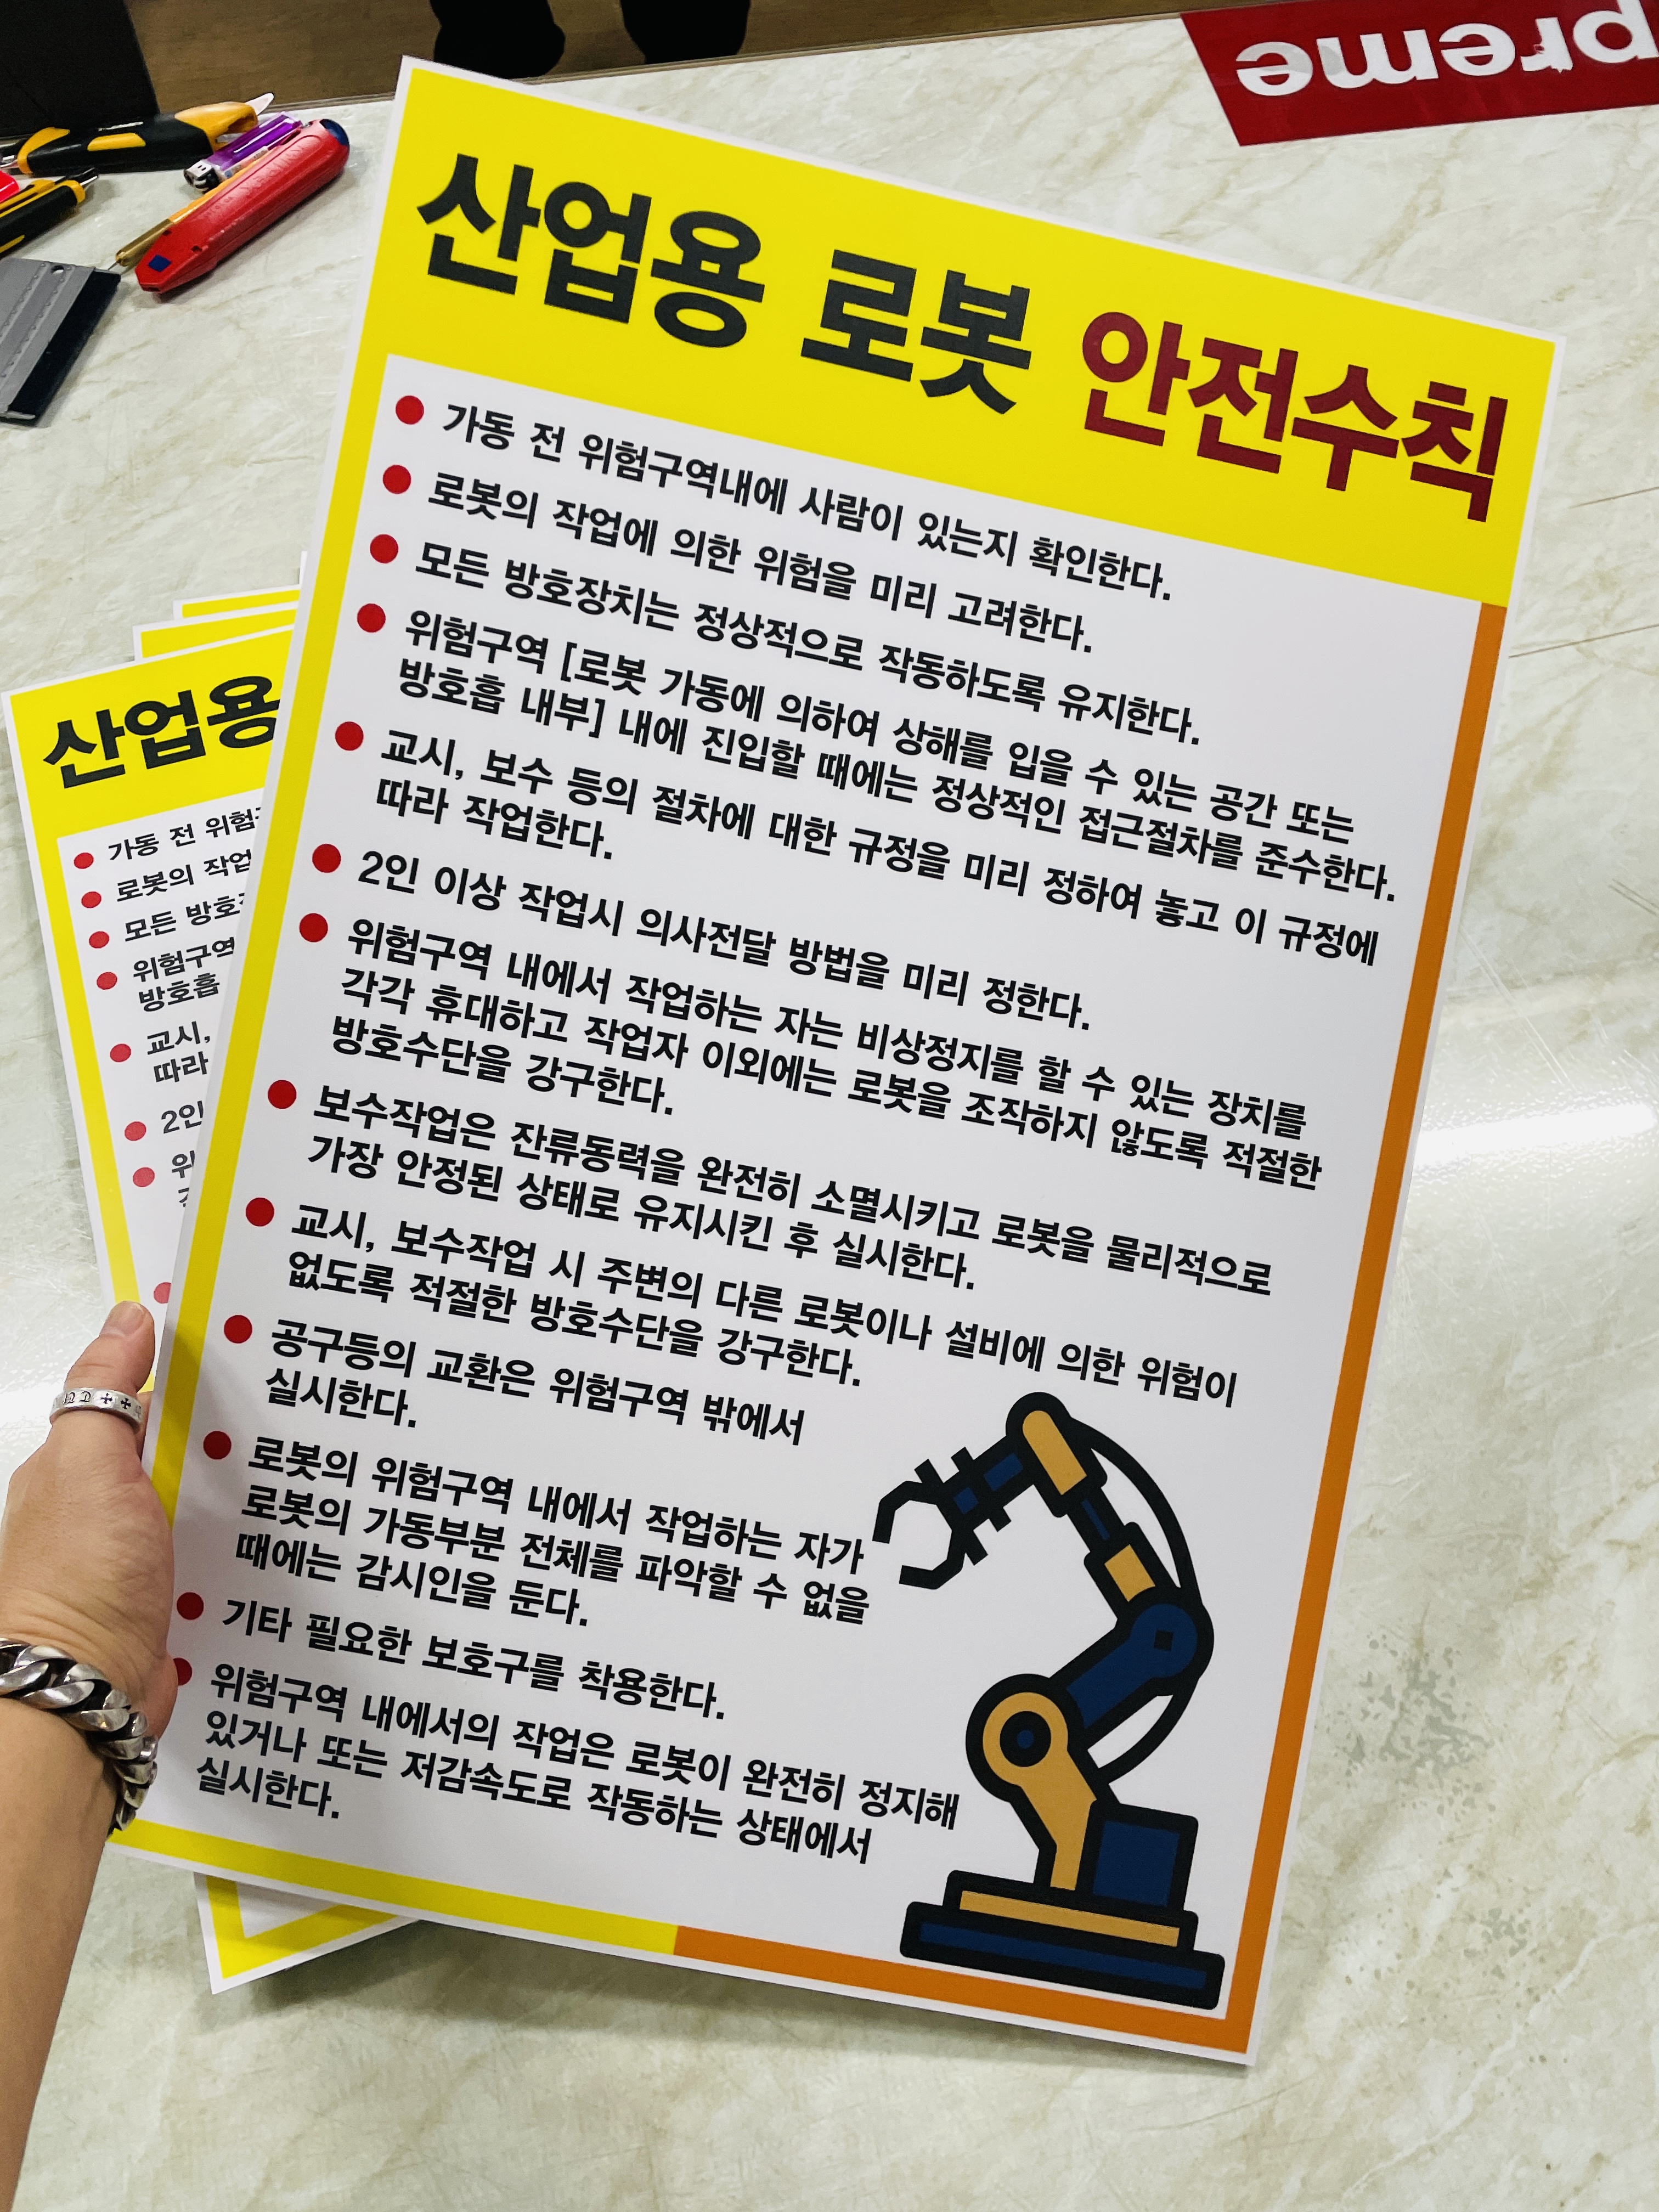 preme
산업용 로봇 안전수칙
가동 전 위험구역내에 사람이 있는지 확인한다.
로봇의 작업에 의한 위험을 미리 고려한다.
모든 방호장치는 정상적으로 작동하도록 유지한다.
위험구역 [로봇 가동에 의하여 상해를 입을 수 있는 공간 또는
방호흡 내부] 내에 진입할 때에는 정상적인 접근절차를 준수한다.
교시, 보수 등의 절차에 대한 규정을 미리 정하여 놓고 이 규정에
따라 작업한다.
2인 이상 작업시 의사전달 방법을 미리 정한다.
위험구역 내에서 작업하는 자는 비상정지를 할 수 있는 장치를
각각 휴대하고 작업자 이외에는 로봇을 조작하지 않도록 적절한
방호수단을 강구한다.
보수작업은 잔류동력을 완전히 소멸시키고 로봇을 물리적으로
가장 안정된 상태로 유지시킨 후 실시한다.
교시, 보수작업 시 주변의 다른 로봇이나 설비에 의한 위험이
없도록 적절한 방호수단을 강구한다.
공구등의 교환은 위험구역 밖에서
실시한다.
로봇의 위험구역 내에서 작업하는 자가
로봇의 가동부분 전체를 파악할 수 없을
때에는 감시인을 둔다.
기타 필요한 보호구를 착용한다.
위험구역 내에서의 작업은 로봇이 완전히 정지해
있거나 또는 저감속도로 작동하는 상태에서
실시한다.
산업용
가동 전 위험
로봇의 작업
모든 방호
위험구역
방호흡
교시,
따라
2인
위